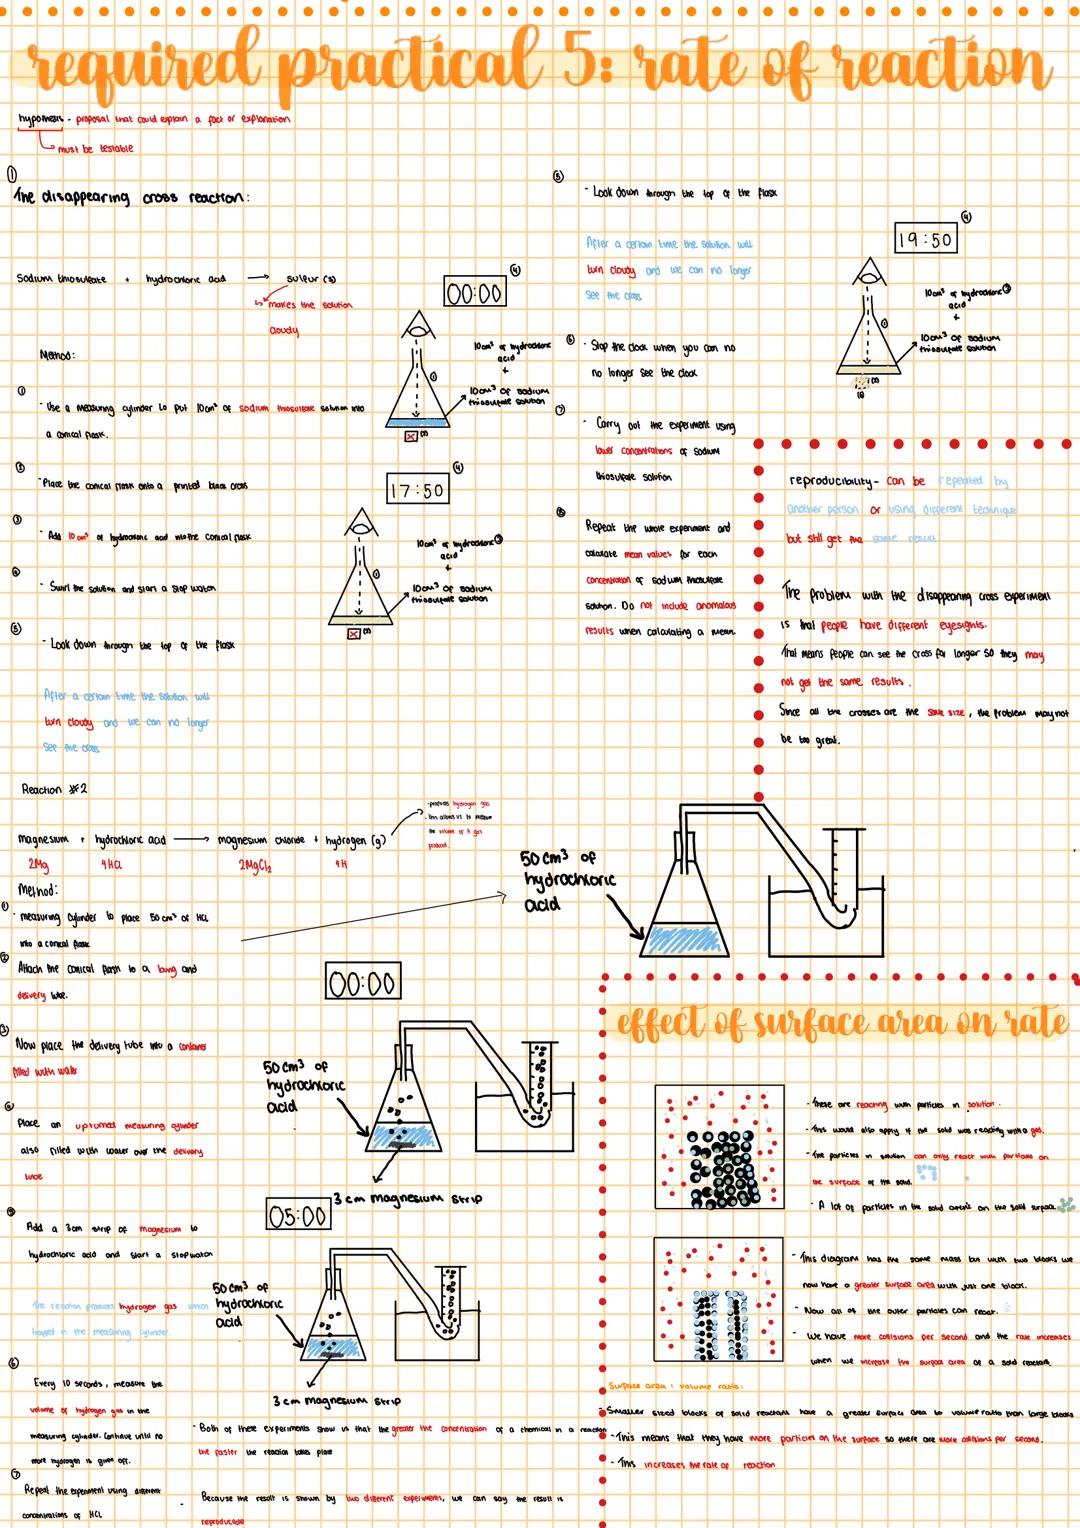 required practical 5: rate of reaction
hypothesis - proposal that could explain a fact or explanation
must be testable
①
The disappearing cross reaction:
Sodium thiosulfate + hydrochloric acid → sulfur (s)
makes the solution
cloudy
Method:
①
- Use a measuring cylinder to put 10cm³ of sodium thiosulfate solution into
a conical flask.
②
- Place the conical flask onto a printed black cross
③
- Add 10 cm³ of hydrochloric acid into the conical flask
④
- Swirl the solution and start a stop watch
⑤
- Look down through the top of the flask
After a certain time the solution will
turn cloudy and we can no longer
see the cross
00:00
④
10cm³ of hydrochloric
acid
+
10cm³ of sodium
thiosulfate solution
17:50
④
10cm³ of hydrochloric ③
acid
+
10cm³ of sodium
thiosulfate solution
⑤
- Look down through the top of the flask
After a certain time the solution will
turn cloudy and we can no longer
see the cross
⑥
- Stop the clock when you can no
no longer see the clock
⑦
- Carry out the experiment using
lower concentrations of sodium
thiosulfate solution
⑧
Repeat the whole experiment and
calculate mean values for each
concentration of sodium thiosulfate
solution. Do not include anomalous
results when calculating a mean.
19:50
④
10cm³ of hydrochloric ③
acid
+
10cm³ of sodium
thiosulfate solution
reproducibility - can be repeated by
another person or using different technique
but still get the same result
The problem with the disappearing cross experiment
is that people have different eyesights.
That means people can see the cross for longer so they may
not get the same results.
Since all the crosses are the same size, the problem may not
be too great.
Reaction #2
magnesium + hydrochloric acid → magnesium chloride + hydrogen (g)
2Mg 4HCl 2MgCl₂ 4H
- produces hydrogen gas
- this allows us to measure
the volume of gas
produced.
Method:
①
- measuring cylinder to place 50 cm³ of HCL
into a conical flask
②
Attach the conical flask to a bung and
delivery tube.
③
Now place the delivery tube into a container
filled with water
④
Place an upturned measuring cylinder
also filled with water over the delivery
tube
⑤
Add a 3cm strip of magnesium to
hydrochloric acid and start a stopwatch
The reaction produces hydrogen gas which
trapped in the measuring cylinder.
⑥
Every 10 seconds, measure the
volume of hydrogen gas in the
measuring cylinder. Continue until no
more hydrogen is given off.
⑦
Repeat the experiment using different
concentrations of HCL
50 cm³ of
hydrochloric
acid
00:00
50 cm³ of
hydrochloric
acid
3 cm magnesium strip
05:00
50 cm³ of
hydrochloric
acid
3 cm magnesium strip
- Both of these experiments show us that the greater the concentration of a chemical in a reaction
the faster the reaction takes place
- Because the result is shown by two different experiments, we can say the result is
reproducible
effect of surface area on rate
- These are reacting with particles in solution.
- This would also apply if the solid was reacting with a gas.
- The particles in solution can only react with particles on
the surface of the solid.
- A lot of particles in the solid aren't on the solid surface
- This diagram has the same mass but with two blocks we
now have a greater surface area with just one block.
- Now all of the outer particles can react.
- We have more collisions per second and the rate increases
when we increase the surface area of a solid reactant.
Surface area : volume ratio:
- Smaller sized blocks of solid reactant have a greater surface area to volume ratio than large blocks
- This means that they have more particles on the surface so there are more collisions per second.
- This increases the rate of reaction